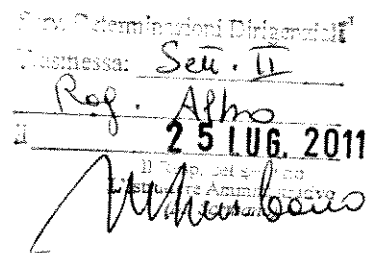 Serv. Determinazioni Dirigenziali
Trasmessa: Sett. II
Rag. Albo
il 25 LUG. 2011
Il Resp. del servizio
L'Istruttore Amministrativo